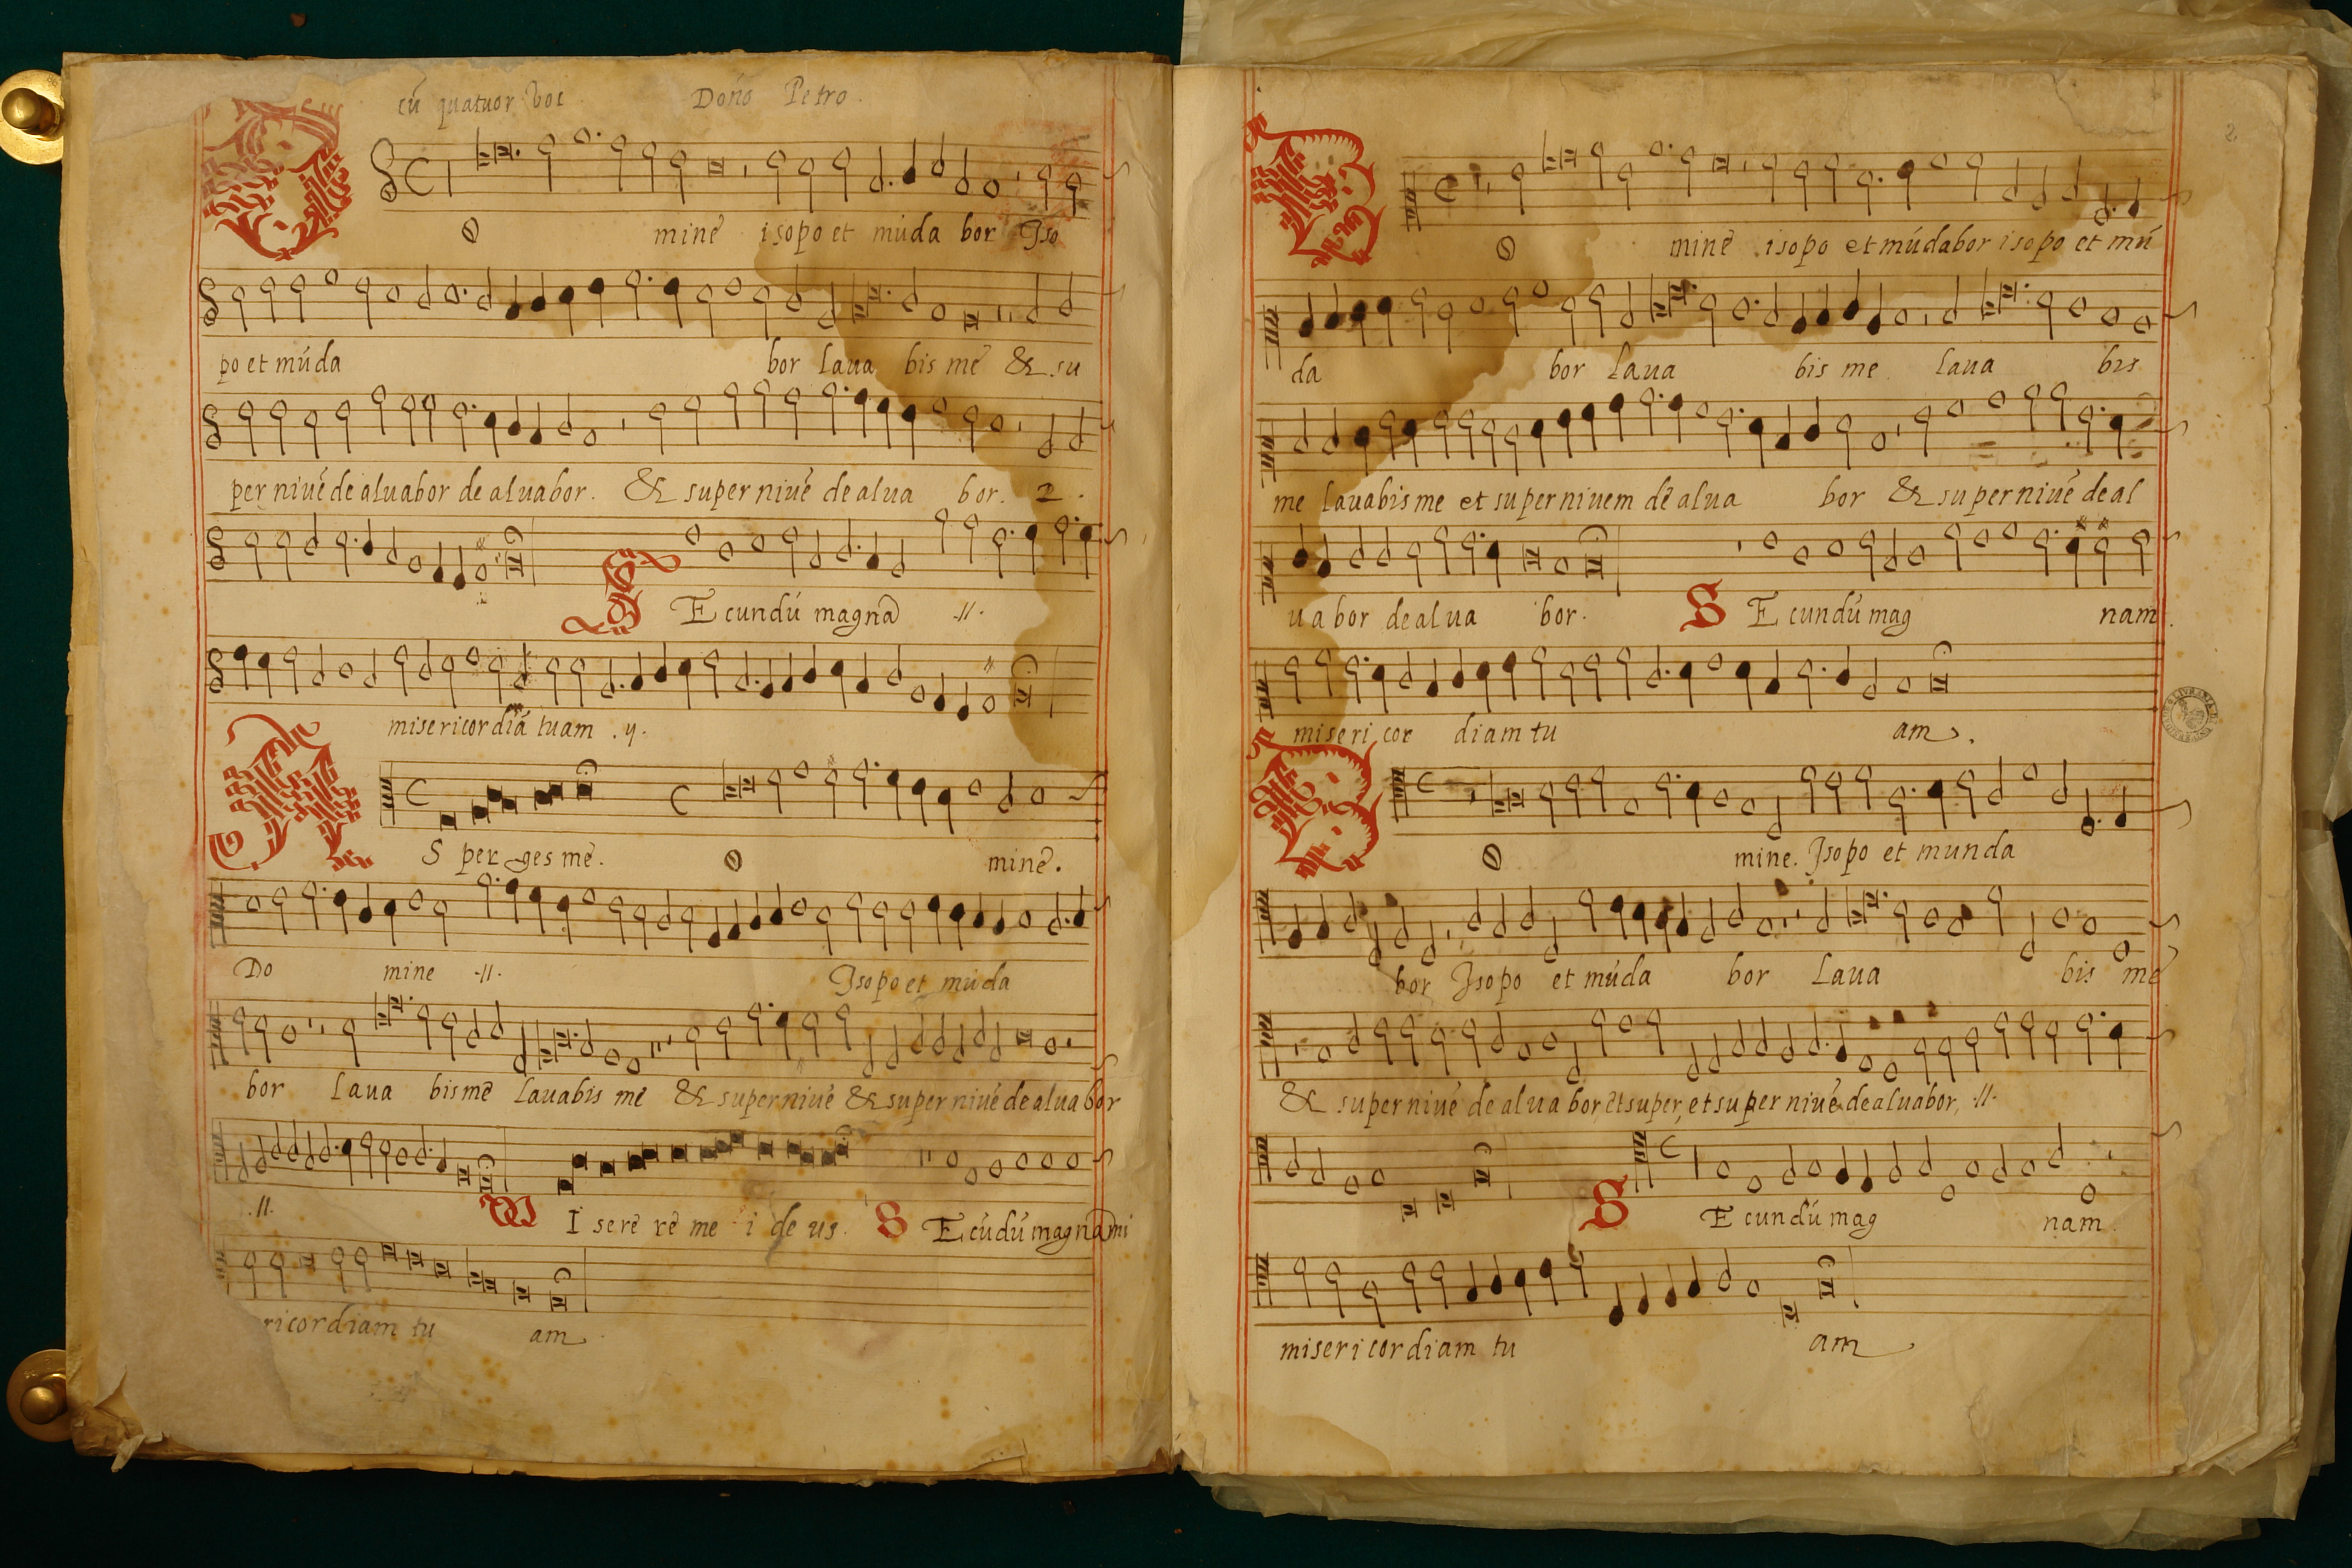 cū quatuor voc Doño Petro.
DO minē isopo et múda bor Iso
po et múda bor laua bis mē & su
per niuē de aluabor de aluabor. & super niuē de alua bor. 2.
SE cundú magnā .//.
misericordiā tuam .y.
AS per ges mē. O minē.
Do mine .//. Isopo et múda
bor laua bis mē lauabis mē & super niuē & super niuē de alua bor
.//. MI serē rē me i de us. SE cúdú magnā mi
ricordiam tu am
2
DO minē isopo et múdabor isopo et mú
da bor laua bis me laua bis
me lauabis me et super niuem dē alua bor & super niuē de al
ua bor de al ua bor. SE cundú mag nam.
miseri cor diam tu am.
DO mine. Isopo et munda
bor Isopo et múda bor Laua bis mē
& super niuē de alua bor, et super, et super niuē de aluabor, .//.
SE cundú mag nam.
misericordiam tu am